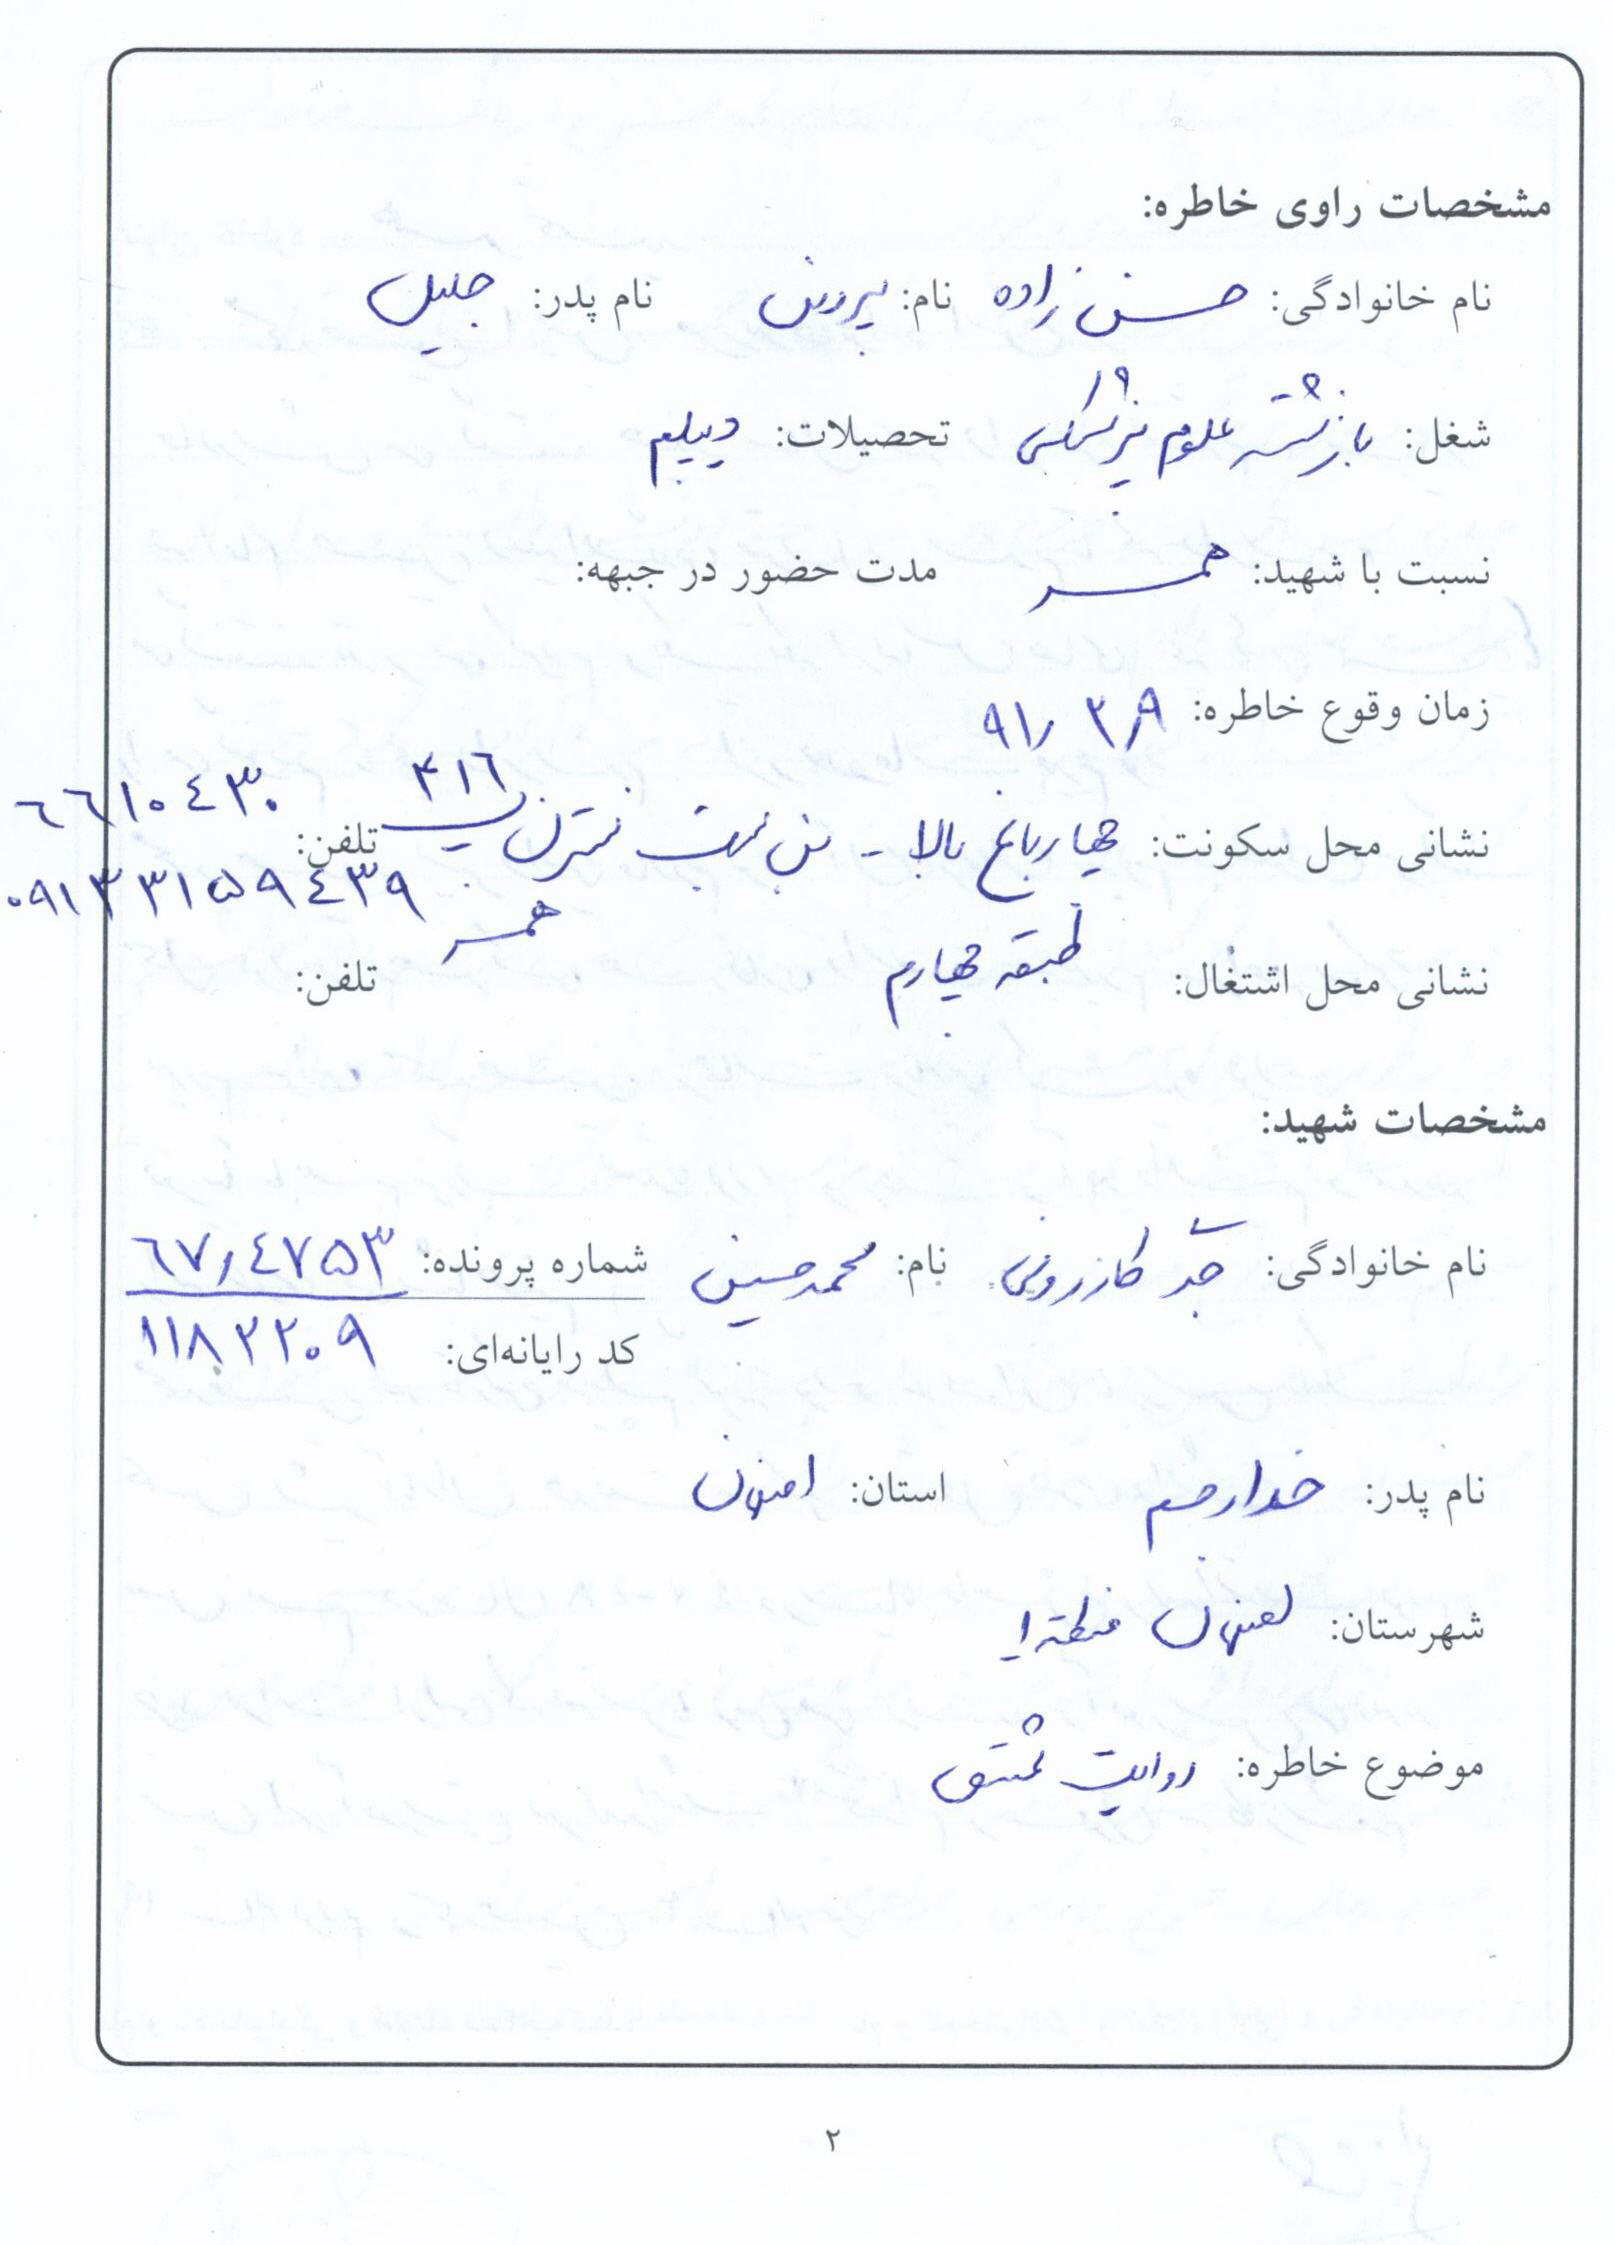 مشخصات راوی خاطره:
نام خانوادگی: حسن زاده نام: پروین نام پدر: جلیل
شغل: بازنشسته علوم پزشکی تحصیلات: دیپلم
نسبت با شهید: همسر مدت حضور در جبهه:
زمان وقوع خاطره: ۹۱/۳/۹
نشانی محل سکونت: چهارباغ بالا - بن بست نسترن پ ۴۱۶ تلفن: ۶۶۱۰۴۳۰
۰۹۱۳۳۱۵۹۴۳۹
همسر
نشانی محل اشتغال: طبقه چهارم تلفن:
مشخصات شهید:
نام خانوادگی: کازرونی نام: محمدحسین شماره پرونده: ۶۷/۴۷۵۳
کد رایانه‌ای: ۱۱۸۲۲۰۹
نام پدر: خدارحم استان: اصفهان
شهرستان: اصفهان منطقه ۱
موضوع خاطره: روایت عشق
۲